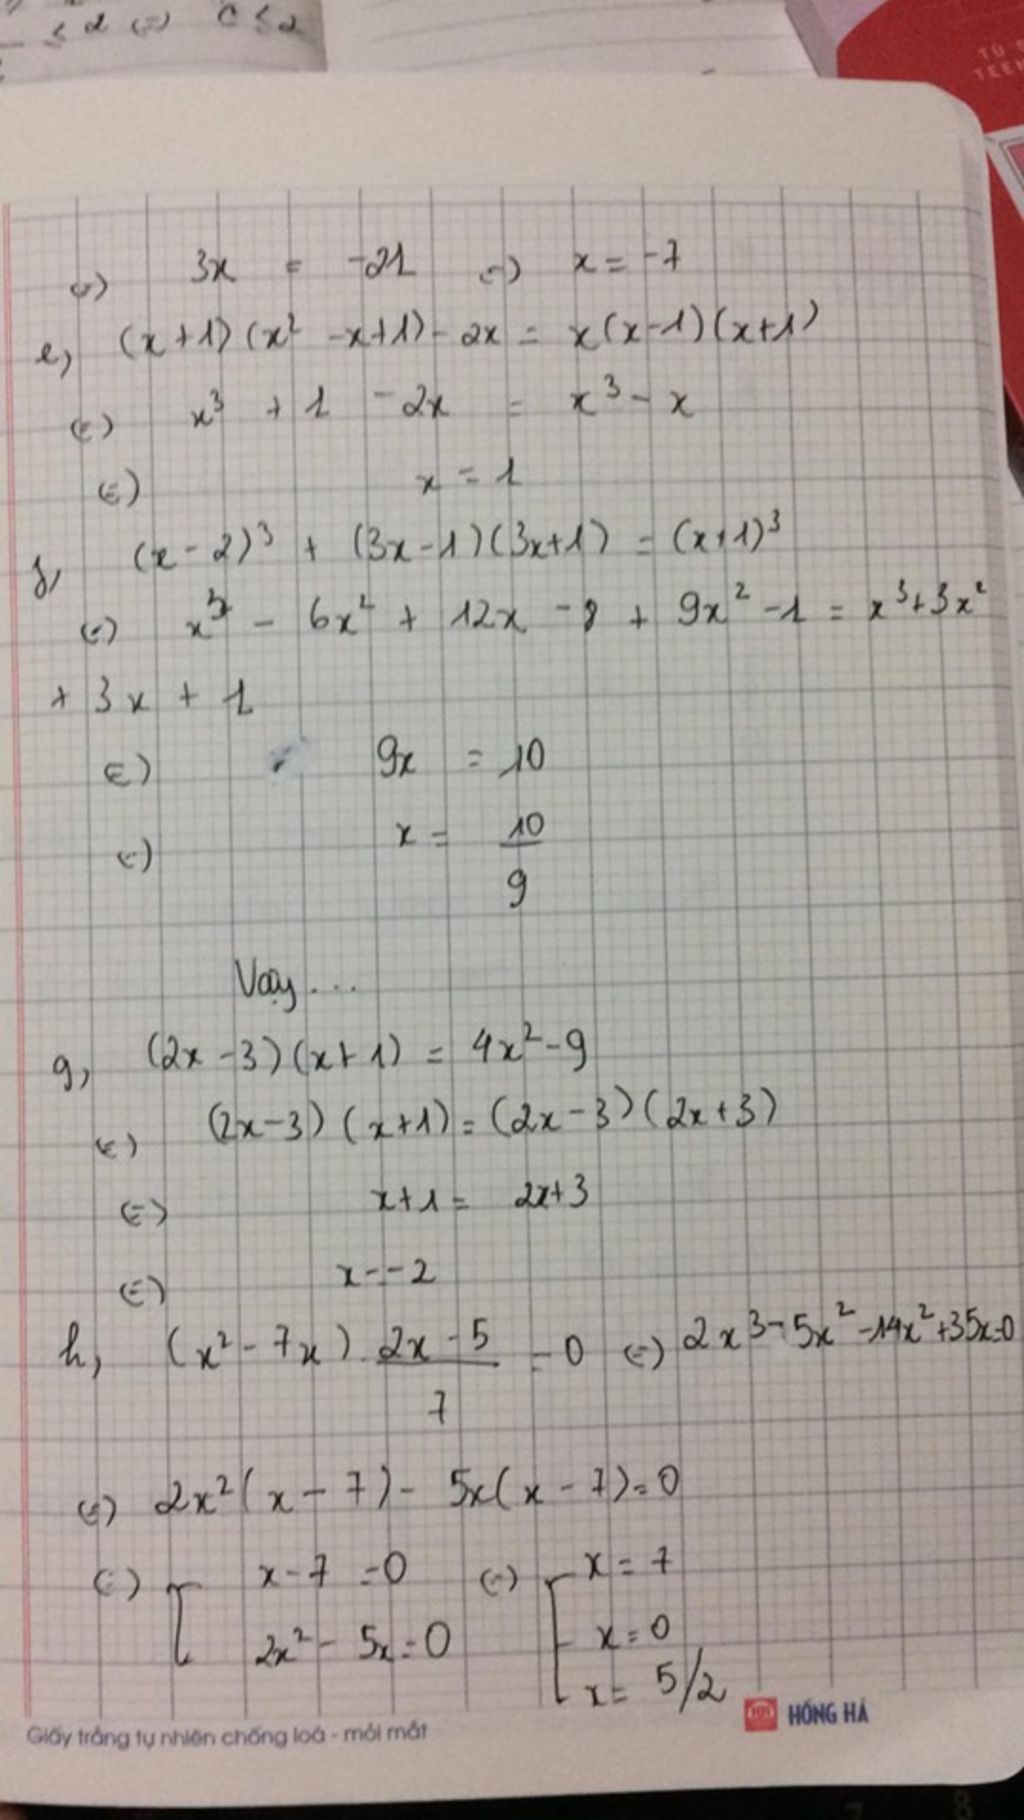 ≤ 2 (=) C ≤ 2
TỦ S
TEEN
(=) 3x = -21 (=) x = -7
e, (x+1)(x² -x+1) - 2x = x(x-1)(x+1)
(=) x³ + 1 - 2x = x³ - x
(=) x = 1
f, (x-2)³ + (3x-1)(3x+1) = (x+1)³
(=) x³ - 6x² + 12x - 8 + 9x² - 1 = x³+3x²
+ 3x + 1
(=) 9x = 10
(=) x = 10/9
Vậy...
g, (2x-3)(x+1) = 4x²-9
(=) (2x-3)(x+1) = (2x-3)(2x+3)
(=) x+1 = 2x+3
(=) x=-2
h, (x²-7x) · (2x-5)/7 = 0 (=) 2x³-5x²-14x²+35x=0
(=) 2x²(x-7) - 5x(x-7)=0
(=) [ x-7=0 (=) [ x=7
2x²-5x=0 x=0
x= 5/2
HH HỒNG HÀ
Giấy trắng tự nhiên chống loá - mỏi mắt